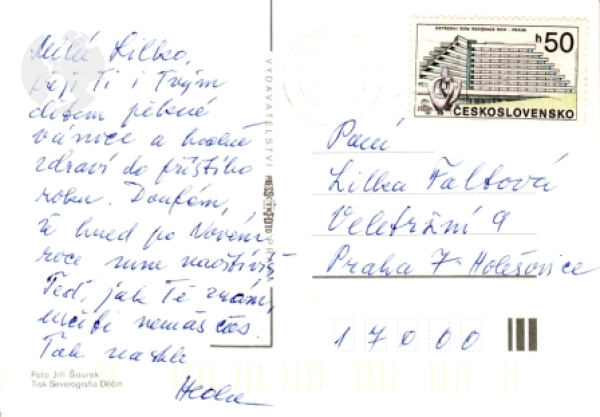 Milá Lilko,
přeji Ti i Tvým
dětem pěkné
vánoce a hodně
zdraví do příštího
roku. Doufám,
že hned po Novém
roce mne navštívíš
Teď, jak Tě znám,
určitě nemáš čas.
Tak nazhle
Foto Jiří Šourek
Tisk Severografia Děčín
VYDAVATELSTVÍ PRESSFOTO PRAHA
ÚSTŘEDNÍ DŮM REKREACE ROH - PRAHA
h50
ČESKOSLOVENSKO
Paní
Lilka Faltová
Veletržní 9
Praha 7 Holešovice
17000